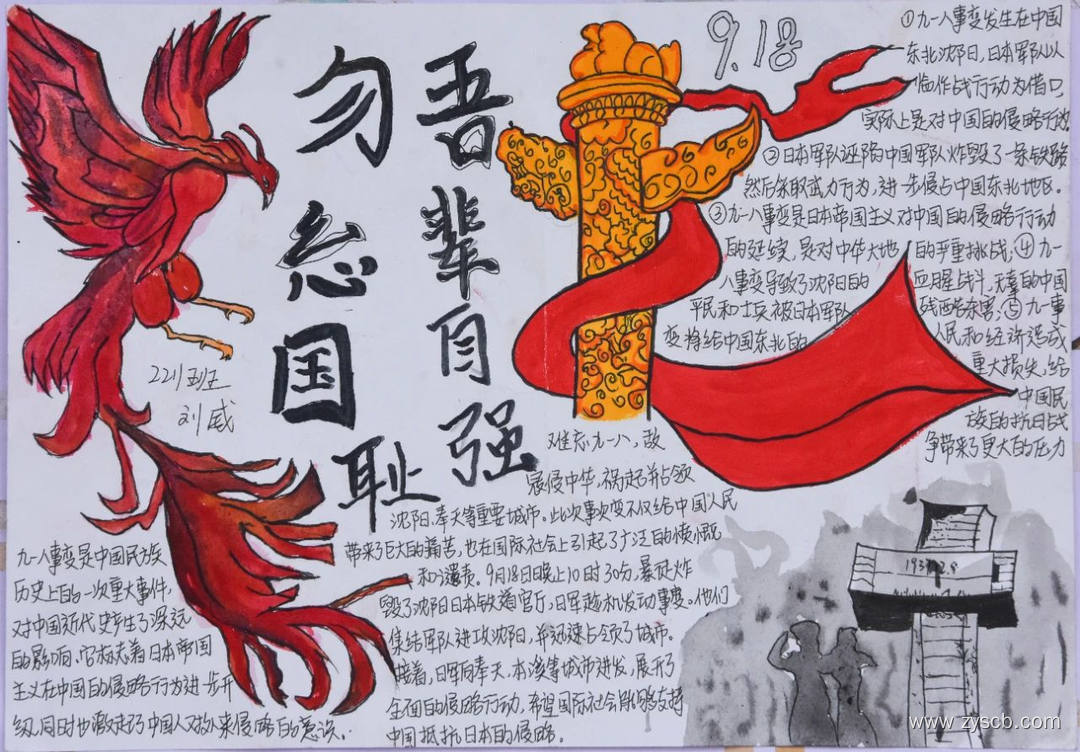 勿忘国耻
吾辈自强
9.18
①九一八事变发生在中国
东北沈阳日,日本军队以
临作战行动为借口,
实际上是对中国的侵略行动
②日本军队诬陷中国军队炸毁了一条铁路
然后采取武力行为,进一步侵占中国东北地区。
③九一八事变是日本帝国主义对中国的侵略行动
的延续,是对中华大地的严重挑战;④九一
八事变导致了沈阳的血腥战斗,无辜的中国
平民和士兵被日本军队残酷杀害;⑤九一事
变将给中国东北的人民和经济造成
重大损失,给
中国民
族的抗日战
争带来了更大的压力
221班
刘威
难忘九一八,敌
展侵中华,祸起并占领
沈阳、奉天等重要城市。此次事变不仅给中国人民
带来了巨大的痛苦,也在国际社会上引起了广泛的愤慨
和谴责。9月18日晚上10时30分,暴徒炸
毁了沈阳日本铁道官厅,日军趁机发动事变。他们
集结军队进攻沈阳,并迅速占领了城市。
接着,日军向奉天、本溪等城市进发,展开了
全面的侵略行动。希望国际社会能够支持
中国抵抗日本的侵略。
九一八事变是中国民族
历史上的一次重大事件,
对中国近代史产生了深远
的影响,它标志着日本帝国
主义在中国的侵略行为进一步升
级,同时也激起了中国人对外来侵略的意识。
www.zyscb.com